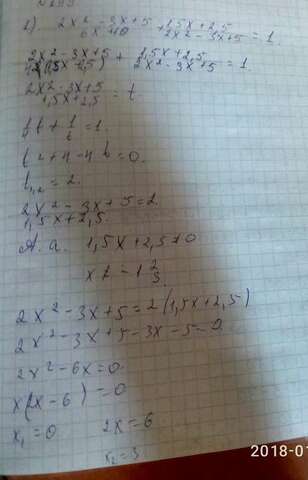 2) (2x² - 3x + 5)/(6x + 10) + (1,5x + 2,5)/(2x² - 3x + 5) = 1.
(2x² - 3x + 5)/(4(1,5x + 2,5)) + (1,5x + 2,5)/(2x² - 3x + 5) = 1.
(2x² - 3x + 5)/(1,5x + 2,5) = t.
t + 1/t = 1.
t² + 4 - 4t = 0.
t₁,₂ = 2.
(2x² - 3x + 5)/(1,5x + 2,5) = 2.
1,5x + 2,5 ≠ 0
x ≠ -1 2/3.
2x² - 3x + 5 = 2(1,5x + 2,5)
2x² - 3x + 5 - 3x - 5 = 0
2x² - 6x = 0.
x(2x - 6) = 0
x₁ = 0 2x = 6
x₂ = 3
2018-01